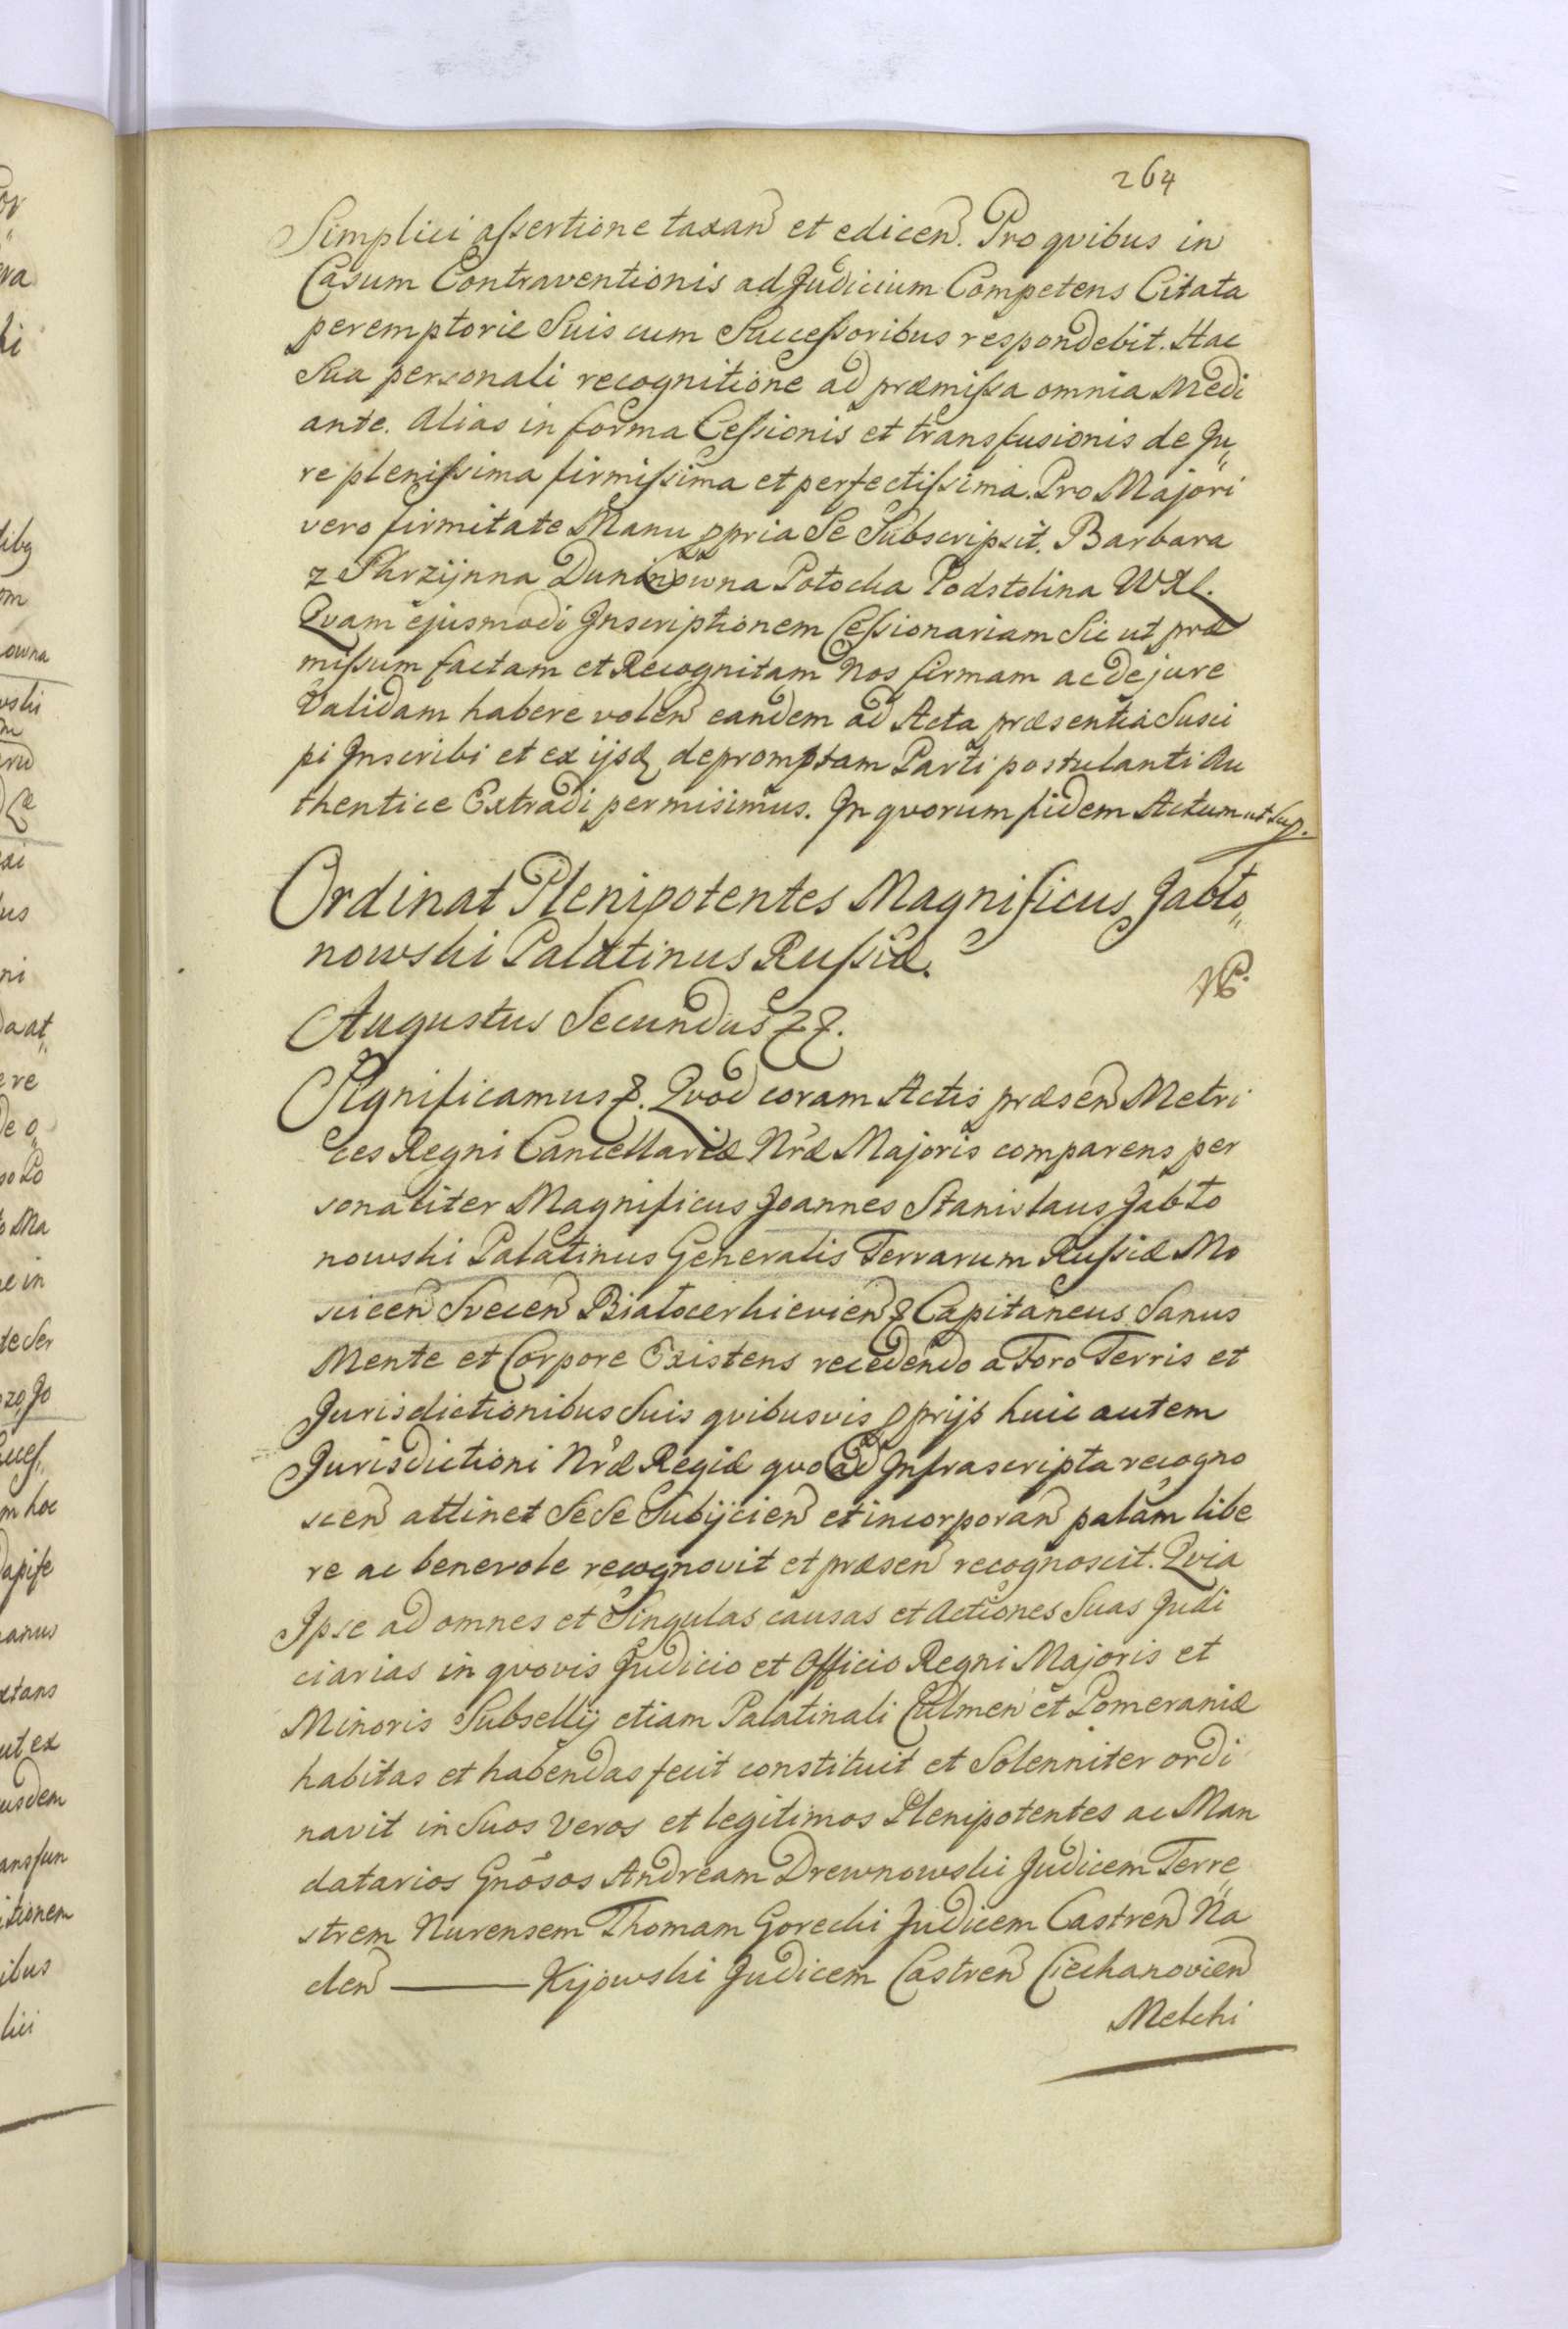 264
Simplici assertione taxan et edicen. Pro qvibus in
Casum Contraventionis ad Judicium Competens Citata
peremptorie Suis cum Successoribus respondebit. Hac
Sua personali recognitione ad præmissa omnia Medi
ante. Alias in forma Cessionis et transfusionis de Ju„
re plenissima firmissima et perfectissima. Pro Majori
vero firmitate Manu ppria Se Subscripsit. Barbara
z Skrzijnna Duninowna Potocka Podstolina WXL.
Qvam ejusmodi Inscriptionem Cessionariam Sic ut præ
missum factam et Recognitam Nos firmam ac de jure
Validam habere volen eandem ad Acta præsentia Susci
pi Inscribi et ex ijsdq depromptam Parti postulanti Au
thentice Extradi permisimus. In qvorum fidem Actum ut Sup.
Ordinat Plenipotentes Magnificus Jabło„
nowski Palatinus Russiæ.
Augustus Secundus &&.
Significamus &. Qvod coram Actis præsen Metri
ces Regni Cancellariæ Nræ Majoris comparens per
sonaliter Magnificus Joannes Stanislaus Jabło
nowski Palatinus Generalis Terrarum Russiæ Mo
scicen Svecen Białocerkievien & Capitaneus Sanus
Mente et Corpore Existens recedendo a Foro Terris et
Jurisdictionibus Suis qvibusvis pprijs huic autem
Jurisdictioni Nræ Regiæ qvo ad Infrascripta recogno
scen attinet Se Se Subijcien et incorporan palam libe
re ac benevole recognovit et præsen recognoscit. Qvia
Ipse ad omnes et Singulas causas et Actiones Suas Judi
ciarias in qvovis Judicio et Officio Regni Majoris et
Minoris Subsellij etiam Palatinali Culmen et Pomeraniæ
habitas et habendas fecit constituit et Solenniter ordi
navit in Suos Veros et legitimos Plenipotentes ac Man
datarios Gnosos Andream Drewnowski Judicem Terre„
strem Nurensem Thomam Gorecki Judicem Castren Na
clen ——— Kijowski Judicem Castren Ciechanovien
Melchi